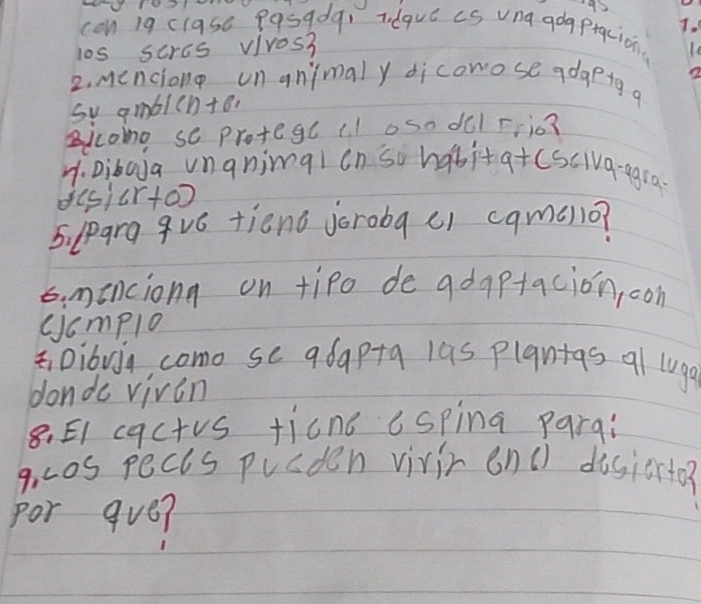 con la clase pasada, 1. ¿que es una adaptacion
los seres vivos?
2. Menciona un animal y di como se adapta a
su ambiente.
3. ¿como se protege el oso del frio?
4. Dibuja un animal en su habitat (selva-agua-
desierto)
5. ¿Para que tiene joroba el camello?
6. menciona un tipo de adaptación, con
ejemplo
7. Dibuja como se adapta las plantas al luga
donde viven
8. El cactus tiene espina para:
9. Los peces pueden vivir en el desierto?
Por que?